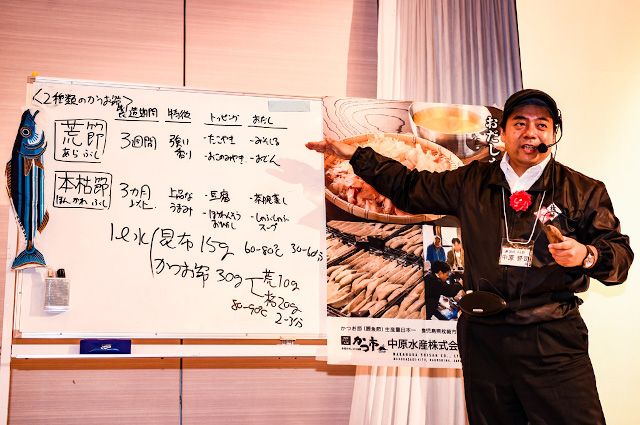 <2種類のかつお節>
製造期間 特徴 トッピング おだし
荒節 3週間 強い ・たこやき ・みそしる
あらぶし 香り ・おこのみやき ・おでん
本枯節 3カ月 上品な ・豆腐 ・茶碗蒸し
ほんかれぶし 以上 うまみ ・ほうれんそう ・しゃぶしゃぶ
おひたし スープ
1ℓ水 昆布 15g 60-80℃ 30-60分
かつお節 30g 荒10g
枯20g
80-90℃
2-3分
おだし
かつお節(鰹魚節)生産量日本一 鹿児島県枕崎市
かつ市 中原水産株式会
NAKAHARA SUISAN CO.,
中原